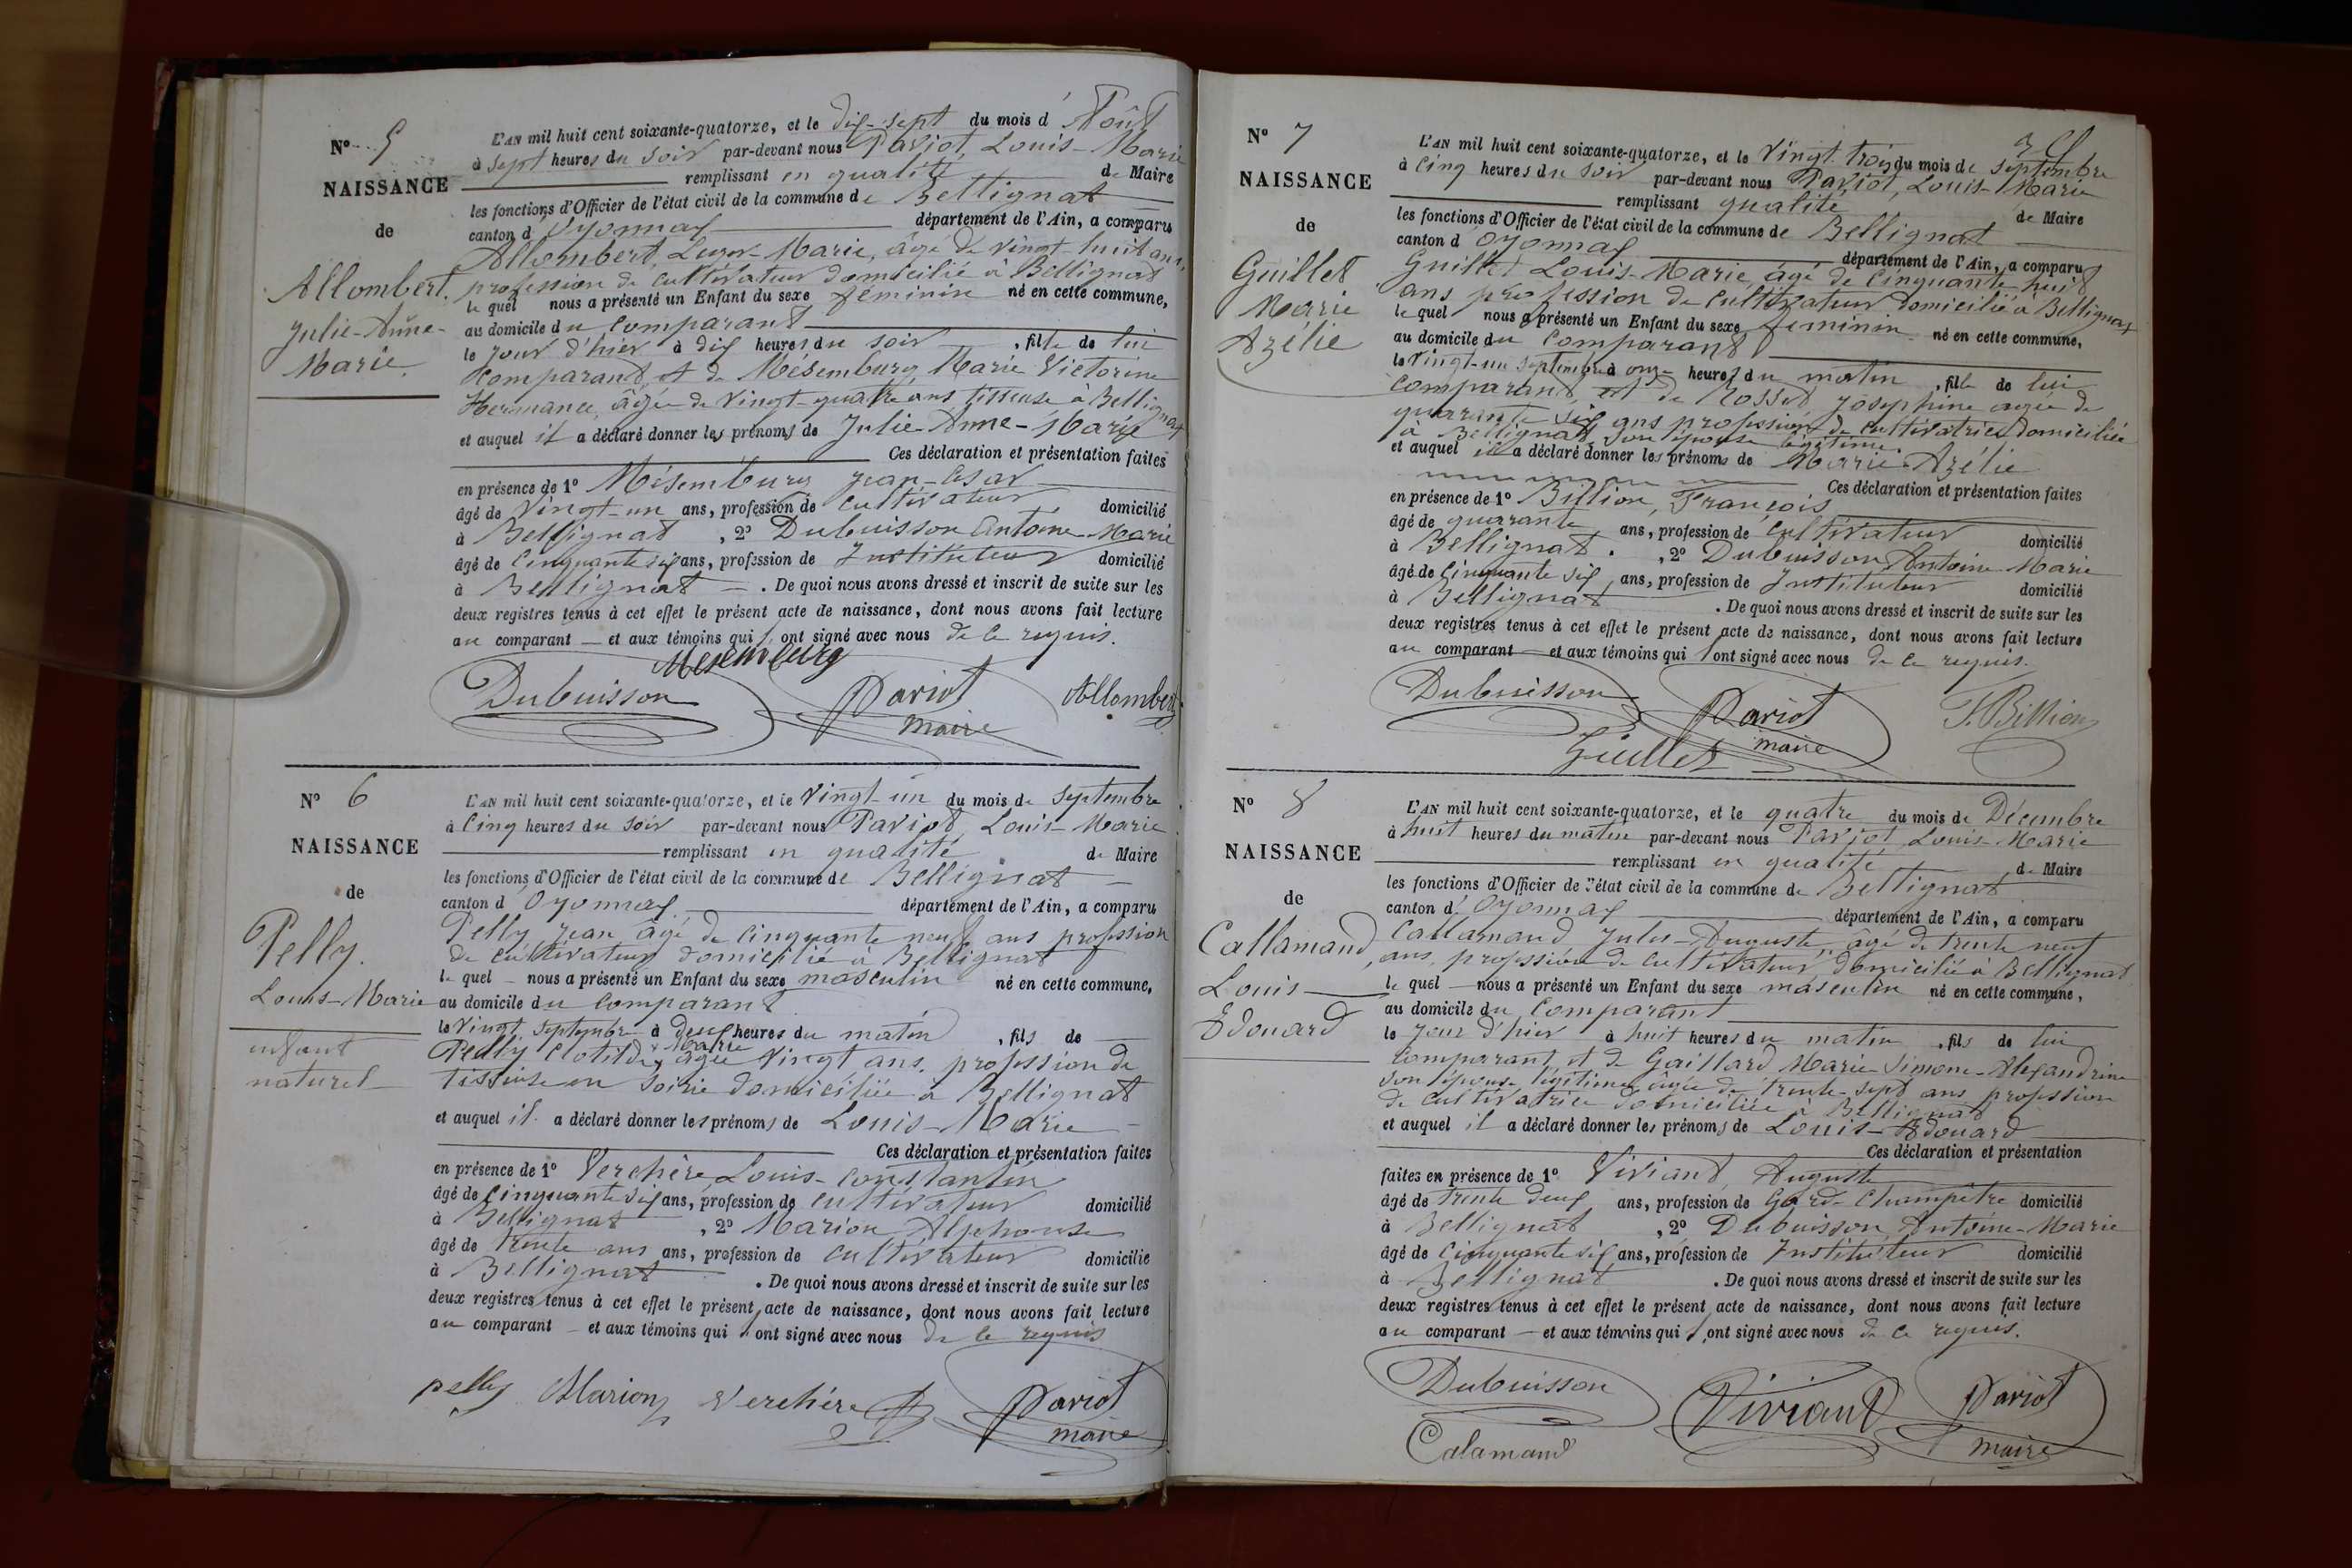 N° 5
NAISSANCE
de
Allombert.
Julie-Anne-
Marie.
L'AN mil huit cent soixante-quatorze, et le dix-sept du mois d'Août
à sept heures du soir par-devant nous Pariot Louis-Marie
remplissant en qualité de Maire
les fonctions d'Officier de l'état civil de la commune de Bellignat
canton d'Oyonnax département de l'Ain, a comparu
Allombert, Marie, âgé de vingt-huit ans,
profession de cultivateur domicilié à Bellignat
le quel nous a présenté un Enfant du sexe féminin né en cette commune,
au domicile du comparant
le jour d'hier à dix heures du soir, fille de lui
comparant et de Mésemburg Marie Victorine
Hermance, âgée de vingt-quatre ans tisseuse à Bellignat
et auquel il a déclaré donner les prénoms de Julie-Anne-Marie
Ces déclaration et présentation faites
en présence de 1° Mésemburg Jean-César
âgé de vingt-un ans, profession de cultivateur domicilié
à Bellignat, 2° Dubuisson Antoine-Marie
âgé de cinquante six ans, profession de Instituteur domicilié
à Bellignat. De quoi nous avons dressé et inscrit de suite sur les
deux registres tenus à cet effet le présent acte de naissance, dont nous avons fait lecture
au comparant et aux témoins qui ont signé avec nous de ce requis.
Mesemburg
Dubuisson Pariot Allombert
maire
N° 6
NAISSANCE
de
Pelly.
Louis-Marie
enfant
naturel
L'AN mil huit cent soixante-quatorze, et le vingt-un du mois de septembre
à cinq heures du soir par-devant nous Pariot, Louis-Marie
remplissant en qualité de Maire
les fonctions d'Officier de l'état civil de la commune de Bellignat
canton d'Oyonnax département de l'Ain, a comparu
Pelly Jean âgé de cinquante neuf ans profession
de cultivateur domicilié à Bellignat
le quel nous a présenté un Enfant du sexe masculin né en cette commune,
au domicile du comparant
le vingt septembre à deux heures du matin, fils de
Marie
Pelly Clotilde, âgée vingt ans, profession de
tisseuse en soirie domiciliée à Bellignat
et auquel il a déclaré donner les prénoms de Louis-Marie
Ces déclaration et présentation faites
en présence de 1° Verchère Louis-Constantin
âgé de cinquante six ans, profession de cultivateur domicilié
à Bellignat, 2° Marion Alphonse
âgé de trente ans ans, profession de cultivateur domicilié
à Bellignat. De quoi nous avons dressé et inscrit de suite sur les
deux registres tenus à cet effet le présent acte de naissance, dont nous avons fait lecture
au comparant et aux témoins qui ont signé avec nous de ce requis
pelly Marion Verchère Pariot
maire
N° 7
NAISSANCE
de
Guillet
Marie
Azélie
L'AN mil huit cent soixante-quatorze, et le vingt-trois du mois de septembre
à cinq heures du soir par-devant nous Pariot, Louis-Marie
remplissant qualité de Maire
les fonctions d'Officier de l'état civil de la commune de Bellignat
canton d'Oyonnax département de l'Ain, a comparu
Guillet Louis-Marie âgé de cinquante-huit
ans profession de cultivateur domicilié à Bellignat
le quel nous a présenté un Enfant du sexe féminin né en cette commune,
au domicile du comparant
le vingt-un septembre à onze heures du matin, fille de lui
comparant et de Rosset Joséphine âgée de
quarante six ans profession de cultivatrice domiciliée
à Bellignat son épouse légitime
et auquel il a déclaré donner les prénoms de Marie-Azélie
Ces déclaration et présentation faites
en présence de 1° Billion, François
âgé de quarante ans, profession de cultivateur domicilié
à Bellignat., 2° Dubuisson Antoine Marie
âgé de cinquante six, ans, profession de Instituteur domicilié
à Bellignat. De quoi nous avons dressé et inscrit de suite sur les
deux registres tenus à cet effet le présent acte de naissance, dont nous avons fait lecture
au comparant et aux témoins qui ont signé avec nous de ce requis.
Dubuisson Pariot F. Billion
maire
Guillet
N° 8
NAISSANCE
de
Callamand,
Louis
Edouard
L'AN mil huit cent soixante-quatorze, et le quatre du mois de Décembre
à huit heures du matin par-devant nous Pariot Louis-Marie
remplissant en qualité de Maire
les fonctions d'Officier de l'état civil de la commune de Bellignat
canton d'Oyonnax département de l'Ain, a comparu
Callamand, Jules-Auguste, âgé de trente neuf
ans, profession de cultivateur, domicilié à Bellignat
le quel nous a présenté un Enfant du sexe masculin né en cette commune,
au domicile du comparant
le jour d'hier à huit heures du matin, fils de lui
comparant et de Gaillard Marie Simone-Alexandrine
son épouse légitime âgée de trente-sept ans profession
de cultivatrice domiciliée à Bellignat
et auquel il a déclaré donner les prénoms de Louis-Edouard
Ces déclaration et présentation
faites en présence de 1° Viviant, Auguste
âgé de trente deux ans, profession de Gard-Champêtre domicilié
à Bellignat, 2° Dubuisson, Antoine-Marie
âgé de cinquante six ans, profession de Instituteur domicilié
à Bellignat. De quoi nous avons dressé et inscrit de suite sur les
deux registres tenus à cet effet le présent acte de naissance, dont nous avons fait lecture
au comparant et aux témoins qui ont signé avec nous de ce requis.
Dubuisson Viviant Pariot
Calamand maire